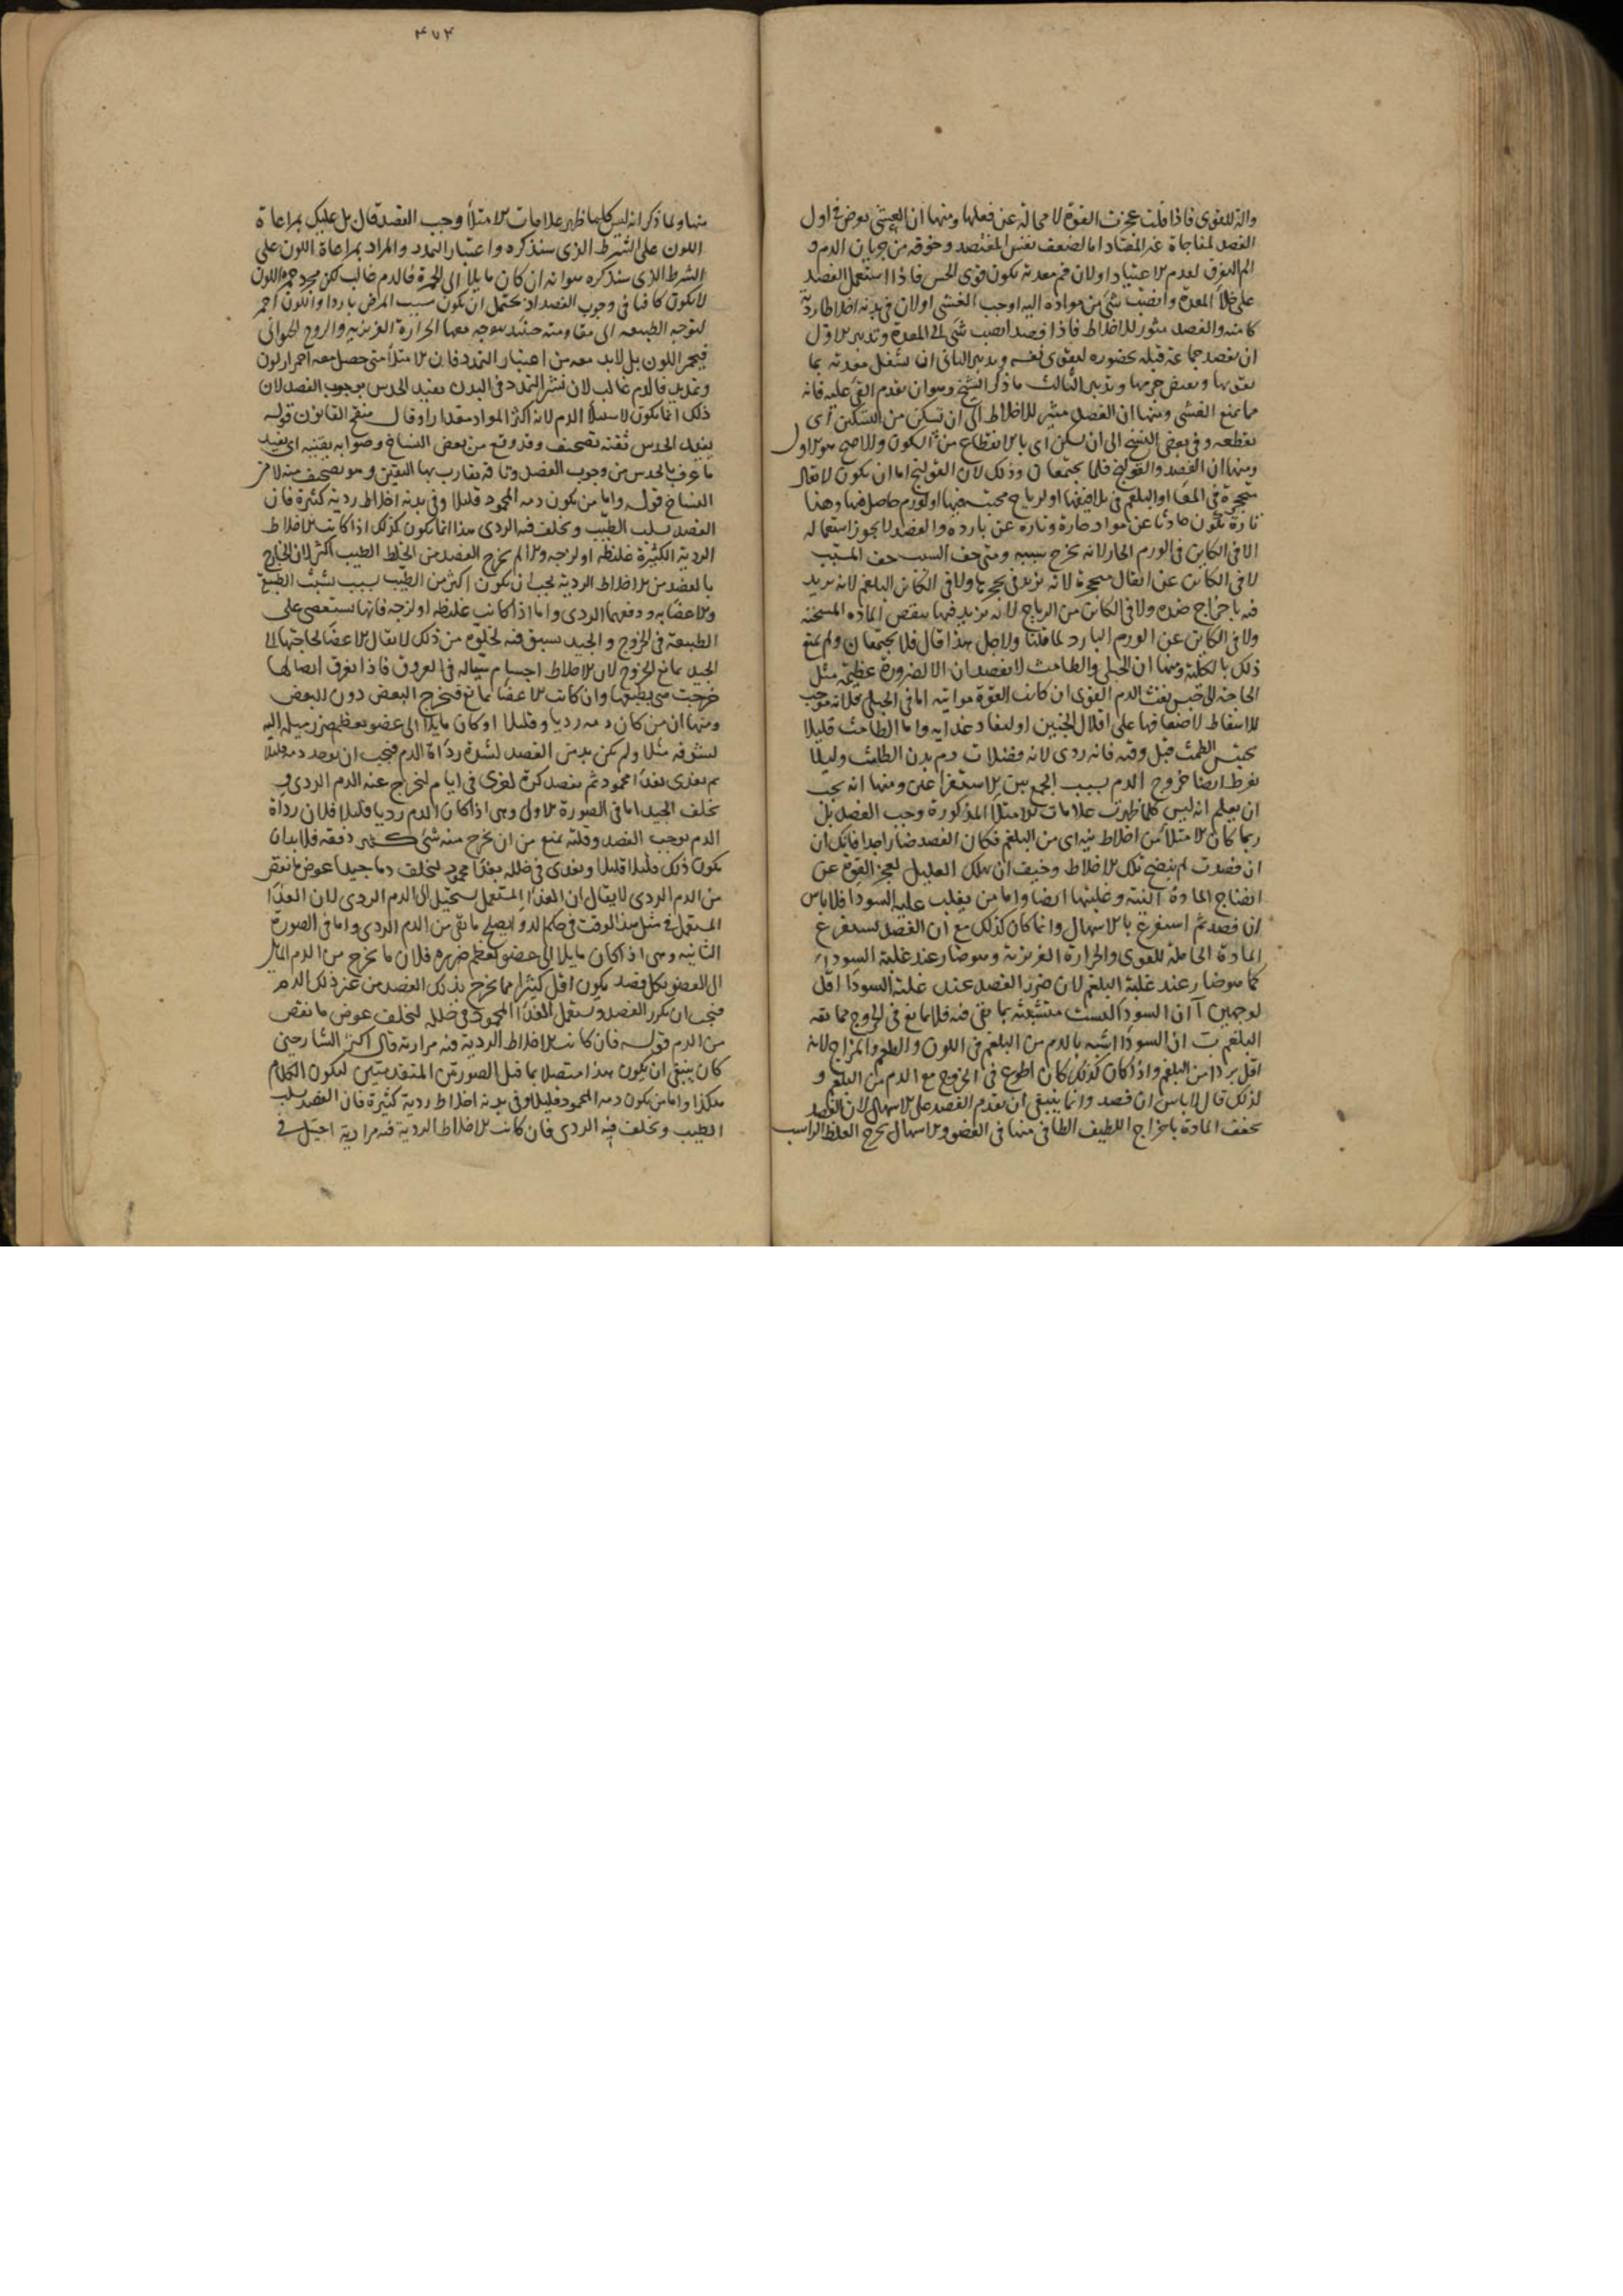 والة للقوى فاذا قلت عجزت القوة لا محالة عن فعلها ومنها ان الغشى يعرض فى اول
الفصد لمفاجاة غير المعتاد اما لضعف نفس المفتصد وخوفه من جريان الدم و
الم العرق لعدم الاعتياد اولان فم معدته يكون قوى الحس فاذا استعمل الفصد
على خلأ المعدة وانصب شى من مواده اليه اوجب الغشى اولان فى بدنه اخلاطا ردية
كامنه والفصد مثور للاخلاط فاذا فصد انصب شى الى المعدة وتدبير الاول
ان يفصد جماعة قبله بحضوره ليقوى نفسه وتدبير الثانى ان يشغل معدته بما
يقويها ويقبض جرمها وتدبير الثالث ما ذكر الشيخ وهو ان يقدم القى عليه فانه
مما يمنع الغشى ومنها ان الفصد مثير للاخلاط الى ان تسكن من التسكين اى
يقطعه وفى بعض النسخ الى ان تسكن اى بالانقطاع من السكون والاصح هو الاول
ومنها ان الفصد والقولنج قلما يجتمعان وذلك لان القولنج اما ان يكون لاثفال
متحجرة فى المعا او البلغم فى الاضها او لرياح محتبسة فيها او لورم حاصل فيها وهذا
تارة تكون حادثا عن مواد حارة وتارة عن بارده والفصد لا يجوز استعماله
الا فى الكاين فى الورم الحار لانه يخرج سببه ومتى خف السبب خف المسبب
لا فى الكاين عن اثفال متحجرة لانه يزيد فى تحجرها ولا فى الكاين البلغم لانه يزيد
فيه باخراج ضده ولا فى الكاين من الرياح لانه يزيد فيها بنقص المادة المسخنة
ولا فى الكاين عن الورم البارد لما قلنا ولاجل هذا قال قلما يجتمعان ولم يمنع
ذلك بالكلية ومنها ان الحبلى والطامث لا يفصدان الا لضرورة عظيمة مثل
الحاجة الى حبس نفث الدم القوى ان كانت القوة مواتيه اما فى الحبلى فلانه موجب
للاسقاط لاضعافها على اقلال الجنين او لنفاد غذايه واما الطامث قليلا
يحتبس الطمث قبل وقته فانه ردى لانه فضلات دم بدن الطامث وليلا
يفرط ايضا خروج الدم بسبب الجمع بين الاستفراغين ومنها انه يجب
ان يعلم انه ليس كلما ظهرت علامات الامتلا المذكورة وجب الفصد بل
ربما كان الامتلا من اخلاط نيه اى من البلغم فكان الفصد ضارا جدا فانك ان
ان فصدت لم ينضج تلك الاخلاط وخيف ان يهلك العليل لعجز القوة عن
انضاج المادة النية وغلبتها ايضا واما من يغلب عليه السودا فلا باس
ان فصد ثم استفرغ بالاسهال وانما كان كذلك مع ان الفصد يستفرغ
المادة الحاملة للقوى والحرارة الغريزية وهو ضار عند غلبة السوداء
كما هو ضار عند غلبة البلغم لان ضرر الفصد عند غلبة السودا اقل
لوجهين آ ان السودا ليست متشبثة بما تقى فيه فلا تمانع فى الخروج ممانعة
البلغم ب ان السودا اشبه بالدم من البلغم فى اللون والطعم والمزاج لانه
اقل بردا من البلغم واذا كان كذلك كان اطوع فى الخروج مع الدم من البلغم و
لذلك قال لا باس ان فصد وانما ينبغى ان يقدم الفصد على الاسهال لان الفصد
يخفف المادة باخراج اللطيف الطافى منها فى العضو والاسهال يخرج الغليظ الراسب
٤٧٤
منها ولما ذكر انه ليس كلما ظهر علامات الامتلأ وجب الفصد قال بل عليك بمراعاة
اللون على الشرط الذى سنذكره واعتبار التمدد والمراد بمراعاة اللون على
الشرط الذى سنذكره هو انه ان كان مايلا الى الحمرة فالدم غالب لكن مجرد حمرة اللون
لا يكون كافيا فى وجوب الفصد اذ يحتمل ان يكون سبب المرض باردا واللون احمر
لتوجه الطبيعه الى مقاومته حينئذ يتوجه معها الحرارة الغريزيه والروح الحيوانى
فيحمر اللون بل لابد معه من اعتبار التمدد فان الامتلأ متى حصل معه احمرار لون
وتمدد فالدم غالب لان نشر التمدد فى البدن يفيد الحدس بوجوب الفصد لان
ذلك انما يكون لاستيلا الدم لانه اكثر المواد مقدارا وقال منقح القانون قوله
يفيد الحدس ثقة تصحيف وقد وقع من بعض النساخ وصوابه بقيته اى يفيد
ما عرف بالحدس من وجوب الفصد وثاقه يقارب بها اليقين وهو تصحيف منه لا من
النساخ قوله واما من يكون دمه المحمود قليلا وفى بدنه اخلاط ردية كثيرة فان
الفصد يسلب الطيب ويخلف فيه الردى هذا انما يكون كذلك اذا كانت الاخلاط
الردية الكثيرة غليظه او لزجه والا لم يخرج الفصد من الخلط الطيب اكثر لان الخارج
بالفصد من الاخلاط الردية يجب ان يكون اكثر من الطيب بسبب تشبث الطبيعة
والاعضا به ودفعهما الردى واما اذا كانت غليظه او لزجه فانها تستعصى على
الطبيعة فى الخروج والجيد يسبق فيه لخلوه من ذلك لا يقال الاعضا لحاجتها الى
الجيد يمانع الخروج لان الاخلاط اجسام سياله فى العروق فاذا تفرق اتصالها
خرجت هى بطبعها وان كانت الاعضا تمانع فيخرج البعض دون البعض
ومنها ان من كان دمه رديا وقليلا او كان مايلا الى عضو يعظم ضرر ميله اليه
لشرفه مثلا ولم يكن بد من الفصد لشدة رداة الدم فيجب ان يوخذ دمه قليلا
ثم يغذى بغذا محمود ثم يفصد كرة اخرى فى ايام ليخرج عنه الدم الردى و
يخلف الجيد اما فى الصورة الاولى وهى اذا كان الدم رديا قليلا فلان رداة
الدم يوجب الفصد وقلته يمنع من ان يخرج منه شى كثير دفعة فلا بد ان
يكون ذلك قليلا قليلا ويغذى فى خلله بغذا محمود ليخلف دما جيدا عوض ما نقص
من الدم الردى لا يقال ان الغذا المستعمل يستحيل الى الدم الردى لان الغذا
المستعمل فى مثل هذا الوقت فى حكم الدوا يصلح ما بقى من الدم الردى واما فى الصورة
الثانيه وهى اذا كان مايلا الى عضو يعظم ضرره فلان ما يخرج من الدم المايل
الى العضو بكل فصد يكون اقل كثيرا مما يخرج بذلك الفصد من غير ذلك الدم
فيجب ان يكرر الفصد ويستعمل الغذا المحمود فى خلله ليخلف عوض ما نقص
من الدم قوله فان كانت الاخلاط الردية فيه مرارية قال اكثر الشارحين
كان ينبغى ان يكون هذا متصلا بما قبل الصورتين المتقدمتين ليكون الكلام
هكذا واما من يكون دمه المحمود قليلا وفى بدنه اخلاط ردية كثيرة فان الفصد يسلب
الطيب ويخلف فيه الردى فان كانت الاخلاط الردية فيه مرارية احتيل فى